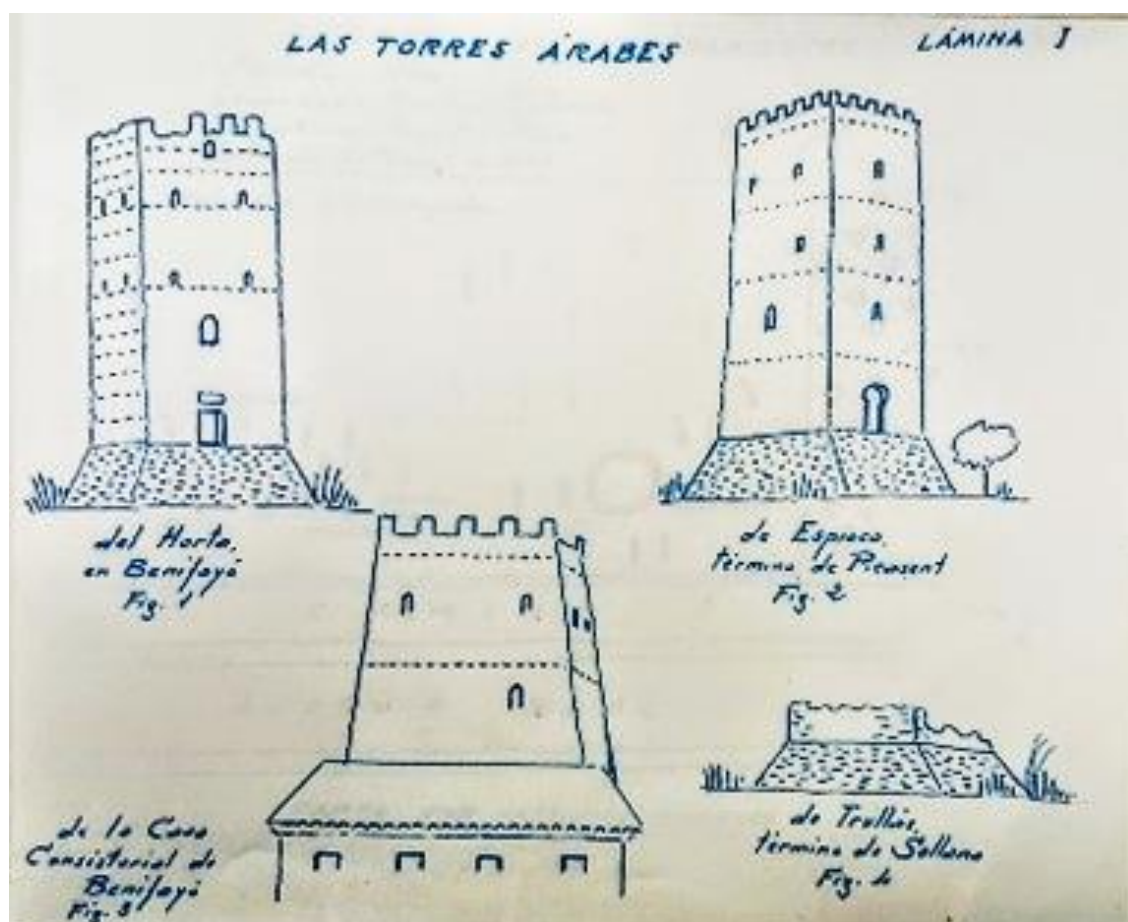 LAS TORRES ÁRABES
LÁMINA I
del Horta,
en Benifayó
Fig. 1
de Espioca,
término de Picasent
Fig. 2
de la Casa
Consistorial de
Benifayó
Fig. 3
de Trullás,
término de Sollana
Fig. 4